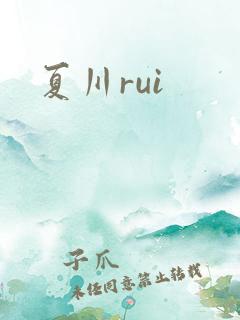 夏川rui
子爪
未经同意禁止转载